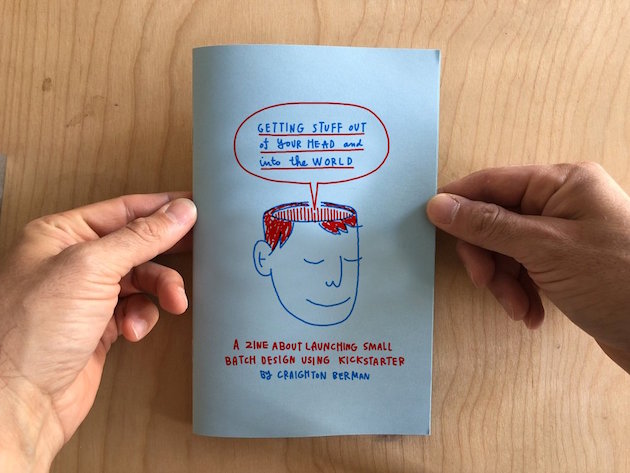 GETTING STUFF OUT
of YOUR HEAD and
into the WORLD
A ZINE ABOUT LAUNCHING SMALL
BATCH DESIGN USING KICKSTARTER
BY CRAIGHTON BERMAN